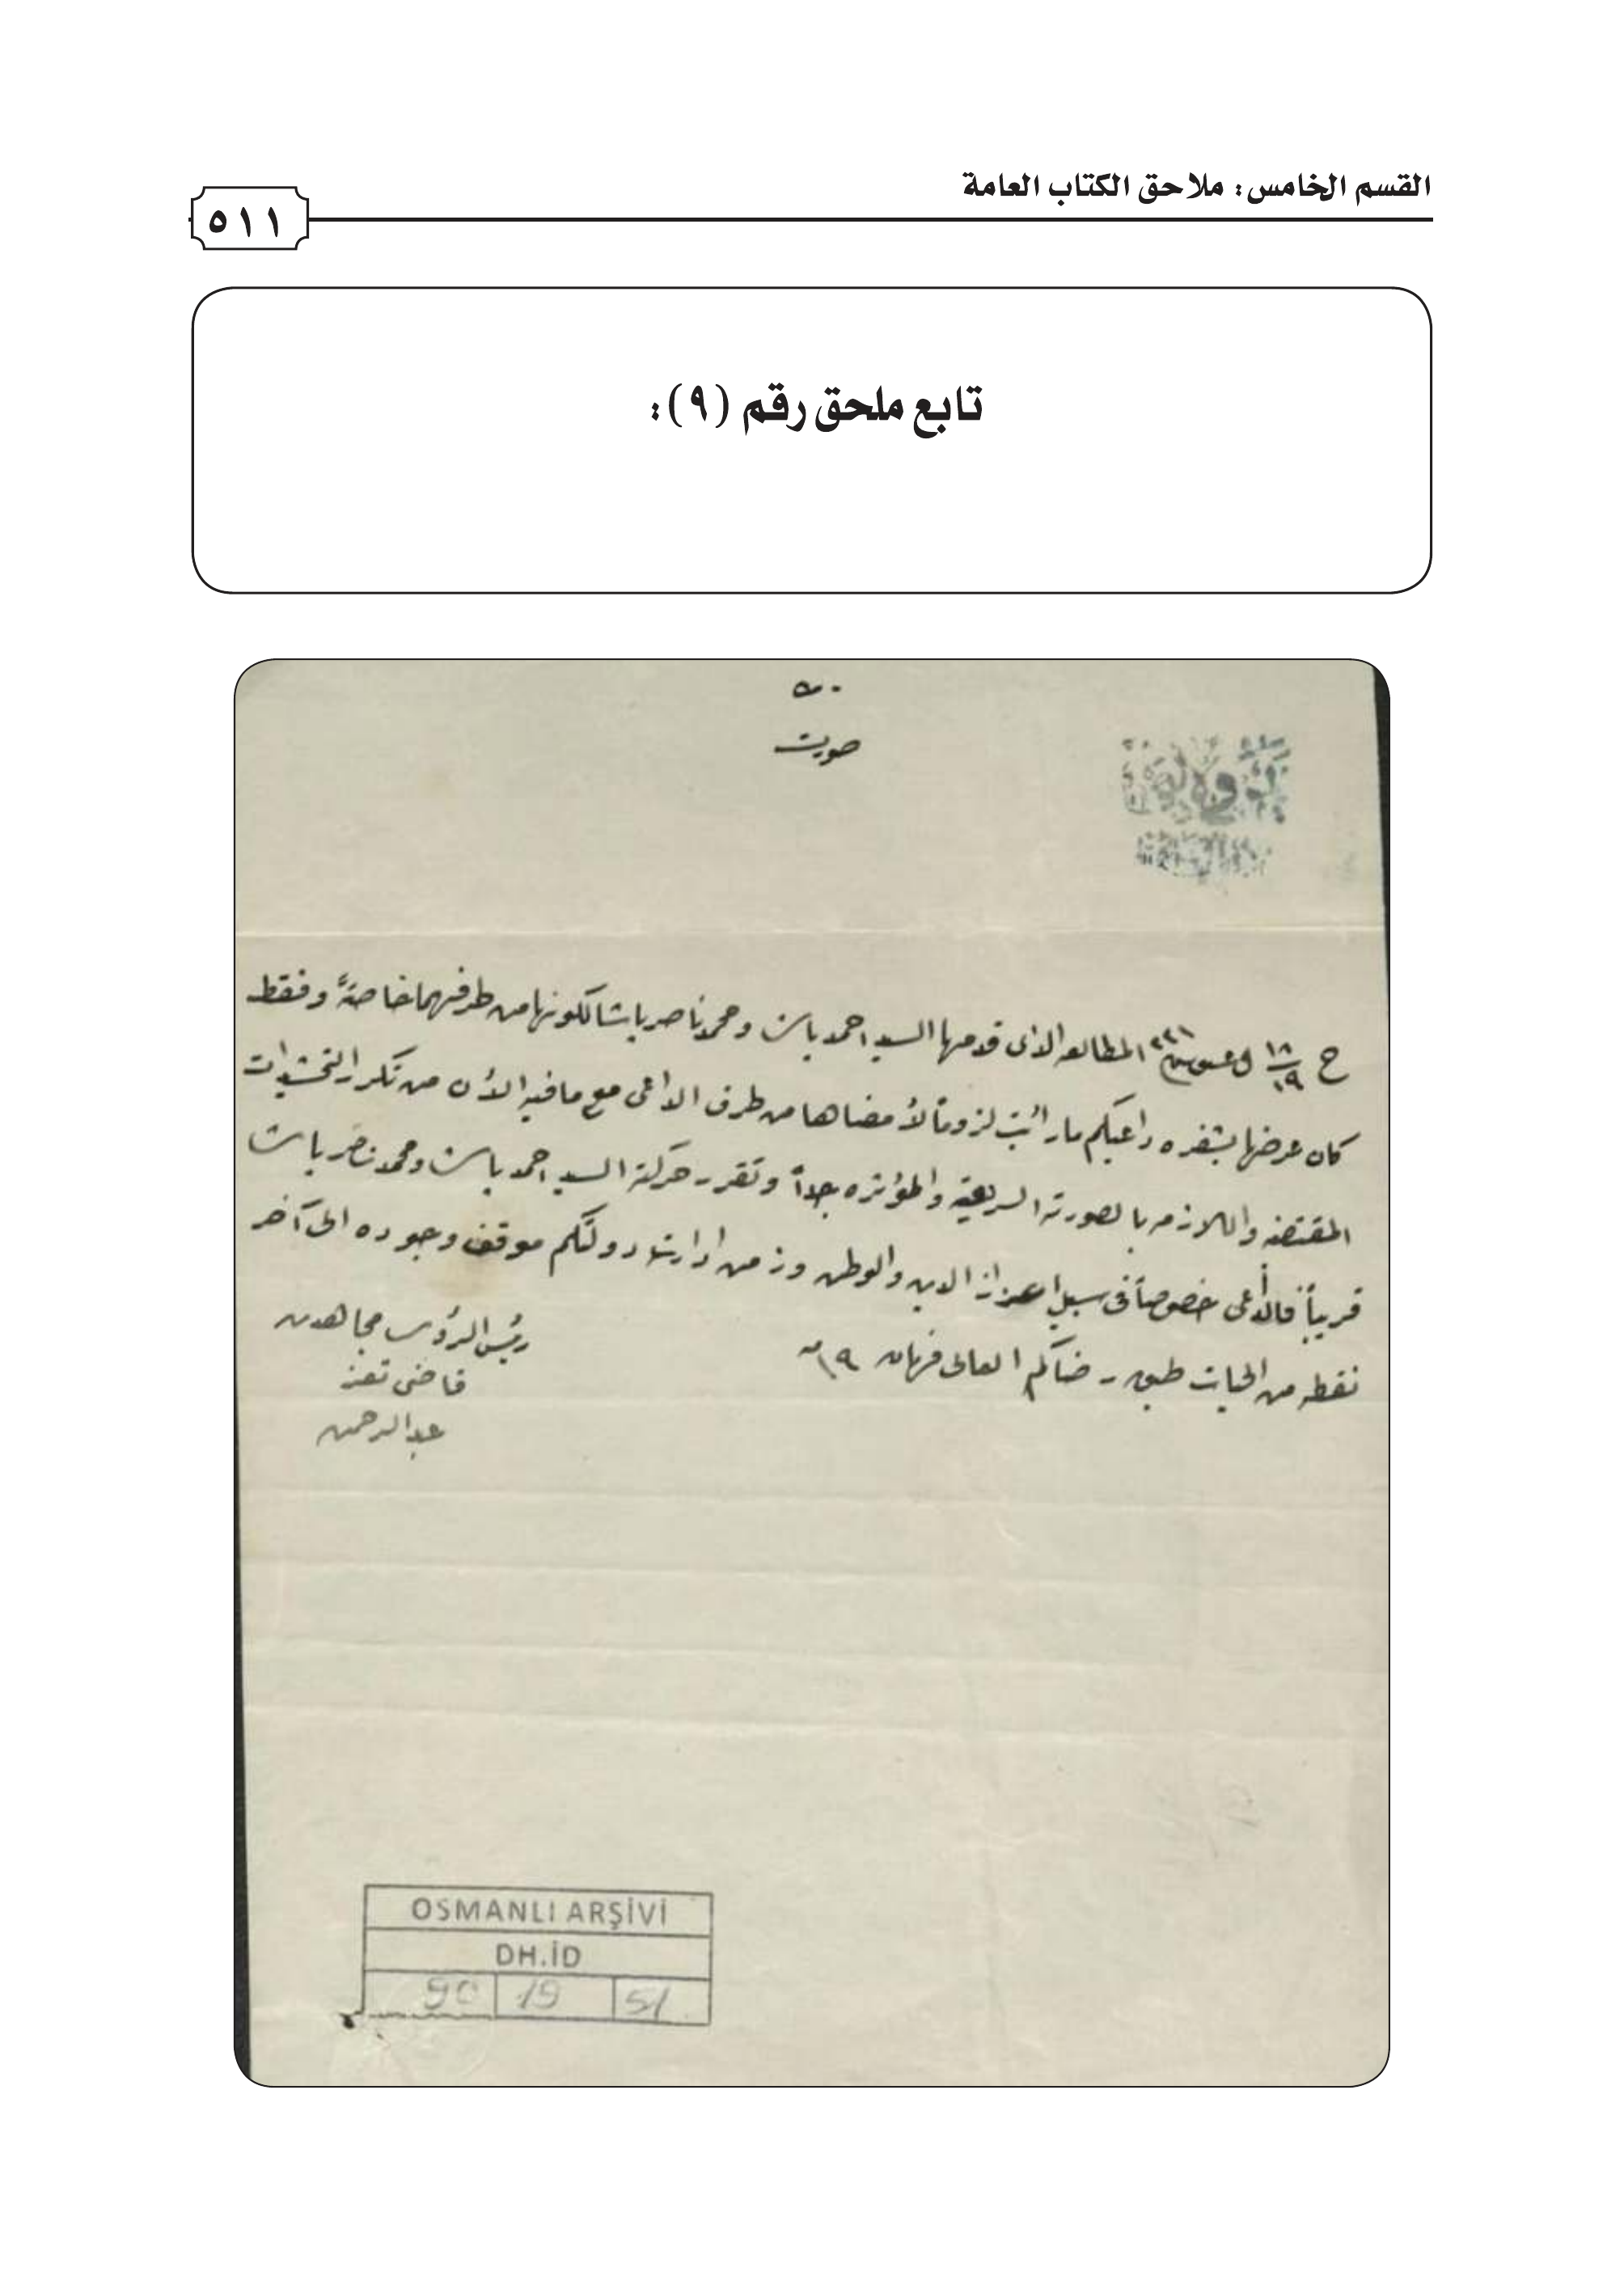 القسم الخامس: ملاحق الكتاب العامة
٥١١
تابع ملحق رقم (٩):
صورت
ج ١٨/١٩ المطالعه الذى قدمها السيد احمد باشا ومحمد ناصر باشا لكونها من طرفهما خاصةً وفقط
كان عرضها بشفره داعيكم ما رائيت لزوماً لأمضاها من طرف الداعى مع مافيه الأن من تكرر التحشيدات
المقتضه واللازمه بالصورته السريعة والمؤثره جداً وتقرر حركة السيد احمد باشا ومحمد ناصر باشا
قريباً فالداعى خصوصاً فى سبيل اعزاز الدين والوطن ومن ادارت دولتكم موقف وجوده الى آخر
نقطه من الحيات طبق رضاكم العالى فرمان ١٩ منه
رئيس الرؤسا مجاهدين
قاضى تعز
عبدالرحمن
OSMANLI ARŞİVİ
DH.İD
90 19 51